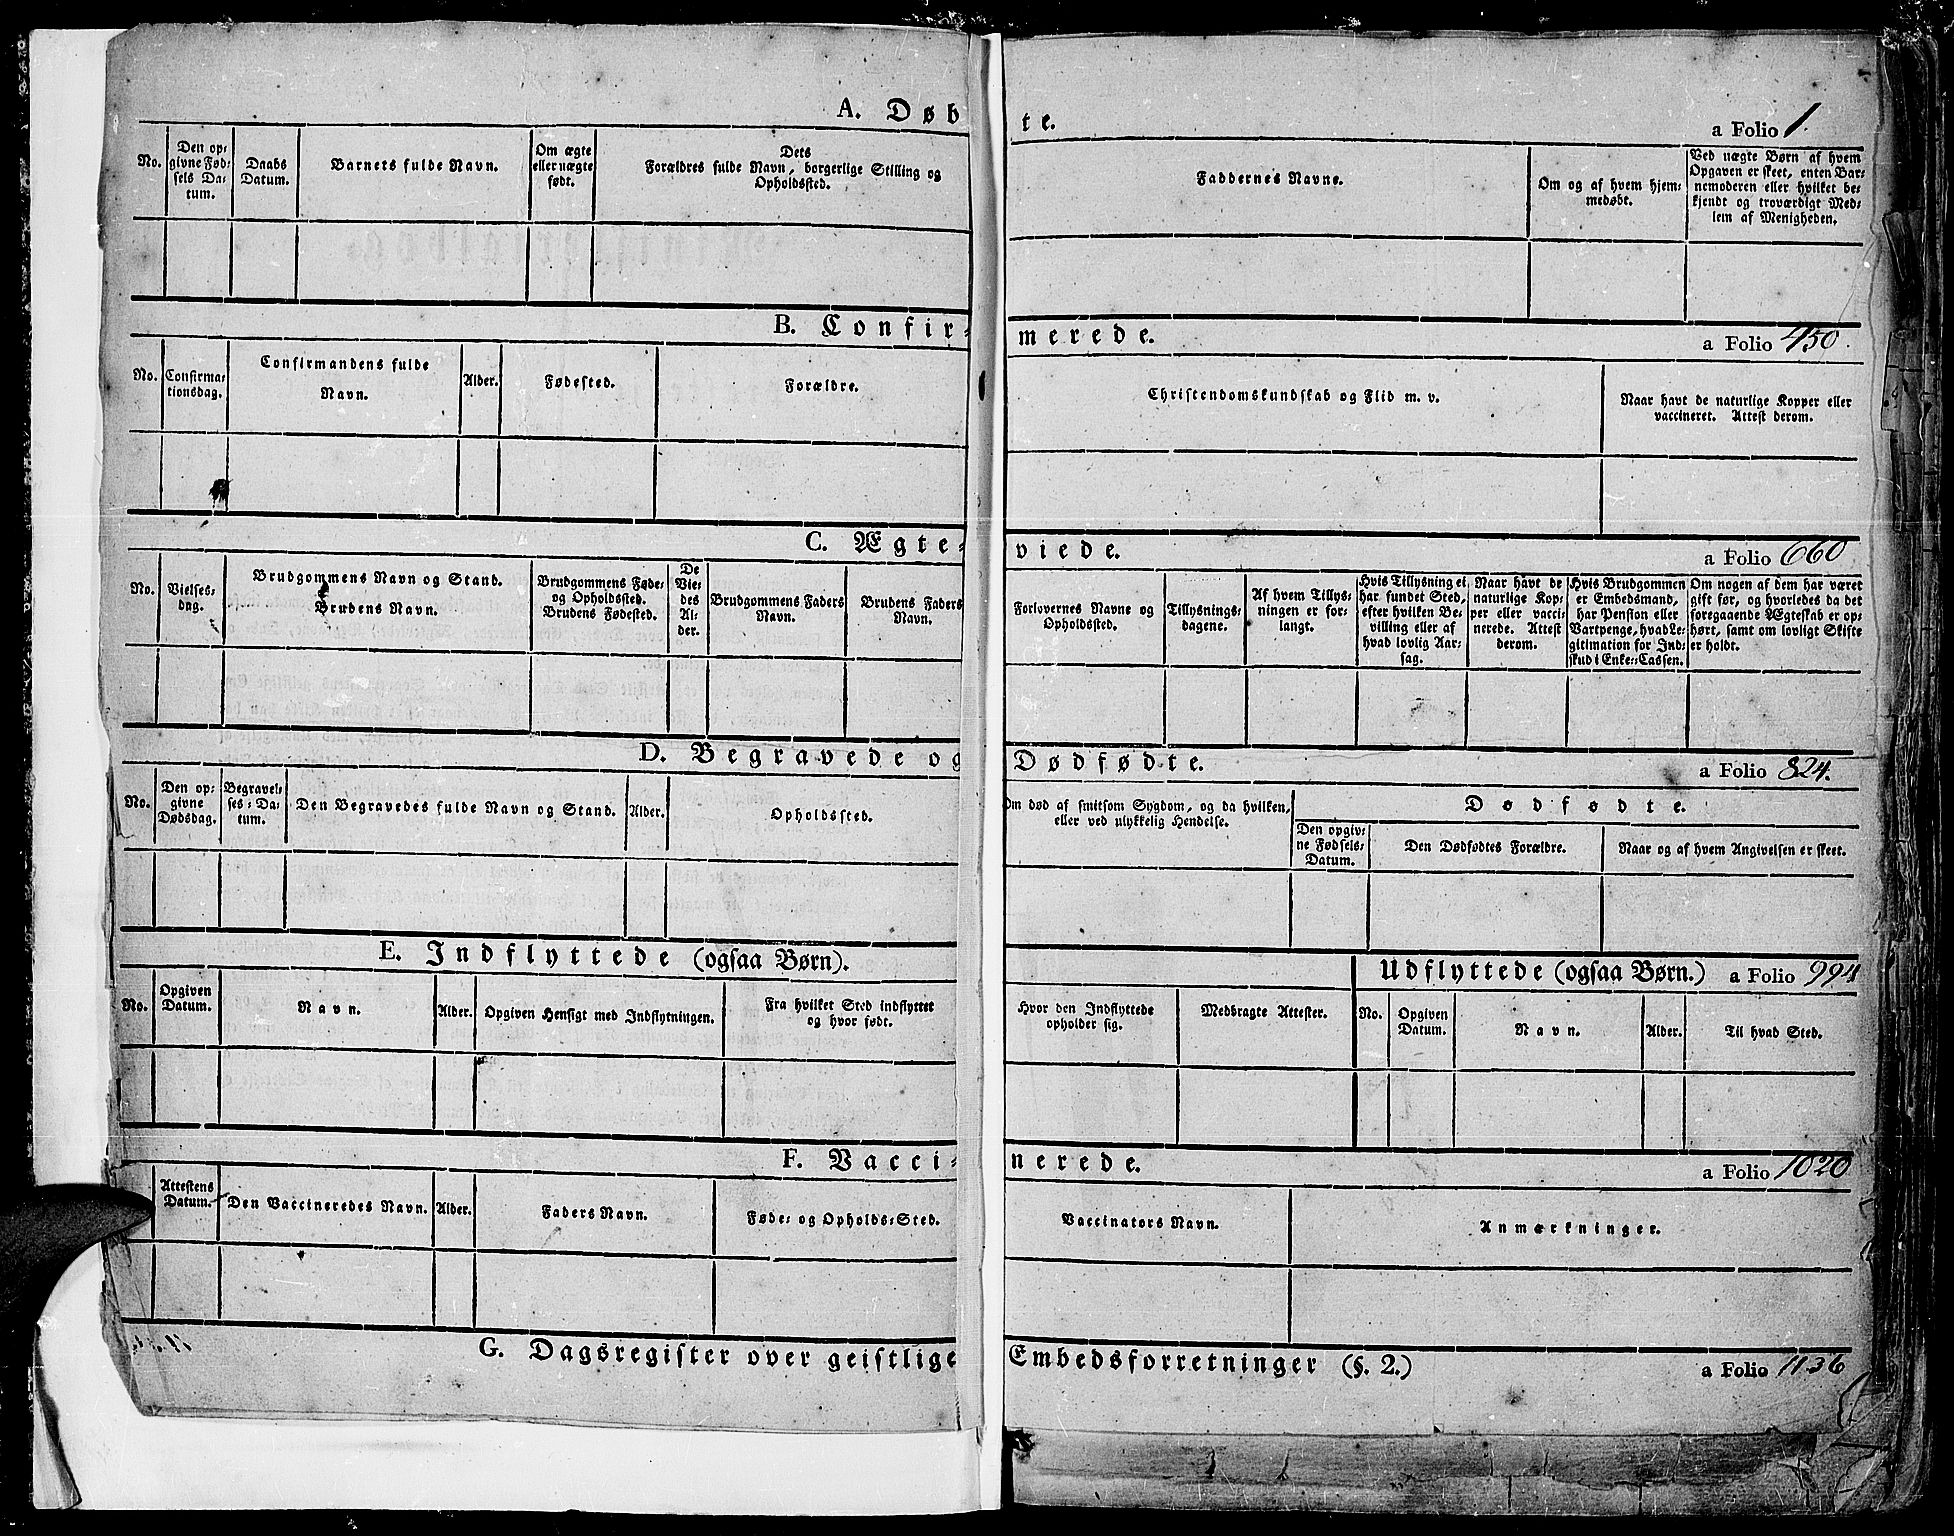 A. Døbte. a Folio 1.
No.
Den op:
givne Fød:
sels Da:
tum.
Daabs
Datum.
Barnets fulde Navn.
Om ægte
eller uægte
født.
Dets
Forældres fulde Navn, borgerlige Stilling og
Opholdssted.
Faddernes Navne.
Om og af hvem hjem:
medøbt.
Ved uægte Børn af hvem
Opgaven er skeet, enten Bar:
nemoderen eller hvilket be:
kjendt og troværdigt Med:
lem af Menigheden.
B. Confir:merede. a Folio 450.
No.
Confirma:
tionsdag.
Confirmandens fulde
Navn.
Alder.
Fødested.
Forældre.
Christendomskundskab og Flid m. v.
Naar havt de naturlige Kopper eller
vaccineret. Attest derom.
C. Ægte:viede. a Folio 660
No.
Vielses:
dag.
Brudgommens Navn og Stand.
Brudens Navn.
Brudgommens Føde:
og Opholdssted.
Brudens Fødested.
De
Vie:
des
Al:
der.
Brudgommens Faders
Navn.
Brudens Faders
Navn.
Forlovernes Navne og
Opholdssted.
Tillysnings:
dagene.
Af hvem Tillys:
ningen er for:
langt.
Hvis Tillysning ei
har fundet Sted,
efter hvilken Be:
villing eller af
hvad lovlig Aar:
sag.
Naar havt de
naturlige Kop:
per eller vacci:
nerede. Attest
derom.
Hvis Brudgommen
er Embedsmand,
har Pension eller
Vartpenge, hvad Le:
gitimation for Ind:
skud i Enke:Cassen.
Om nogen af dem har været
gift før, og hvorledes da det
foregaaende Ægteskab er op:
hørt, samt om lovligt Skifte
er holdt.
D. Begravede og Dødfødte. a Folio 824.
No.
Den op:
givne
Dødsdag.
Begravel:
ses: Da:
tum.
Den Begravedes fulde Navn og Stand.
Alder.
Opholdssted.
Om død af smitsom Sygdom, og da hvilken,
eller ved ulykkelig Hendelse.
Dødfødte.
Den opgiv:
ne Fødsels:
Datum.
Den Dødfødtes Forældre.
Naar og af hvem Angivelsen er skeet.
E. Indflyttede (ogsaa Børn). Udflyttede (ogsaa Børn.) a Folio 994
No.
Opgiven
Datum.
Navn.
Alder.
Opgiven Hensigt med Indflytningen.
Fra hvilket Sted indflyttet
og hvor født.
Hvor den Indflyttede
opholder sig.
Medbragte Attester.
No.
Opgiven
Datum.
Navn.
Alder.
Til hvad Sted.
F. Vacci:nerede. a Folio 1020
Attestens
Datum.
Den Vaccineredes Navn.
Alder.
Faders Navn.
Føde: og Opholds:Sted.
Vaccinators Navn.
Anmærkninger.
G. Dagsregister over geistlige Embedsforretninger (§. 2.) a Folio 1136